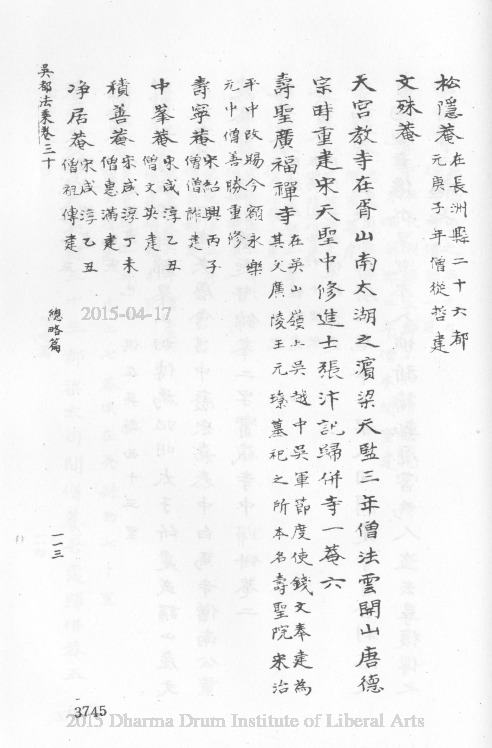 松隱菴在長洲縣二十六都
元庚子年僧從哲建
文殊菴
天宮教寺在胥山南太湖之濱梁天監三年僧法雲開山唐德
宗時重建宋天聖中修進士張汴記歸併寺一菴六
壽聖廣福禪寺在吳山嶺上吳越中吳軍節度使錢文奉建為
其父廣陵王元璙墓祀之所本名壽聖院宋治
平中改賜今額永樂
元中僧善勝重修
壽寧菴宋紹興丙子
僧僧祚建
中峯菴宋咸淳乙丑
僧文英建
積善菴宋咸淳丁未
僧惠滿建
淨居菴宋咸淳乙丑
僧祖傳建
吳都法乘卷三十
總略篇
一一三
3745
2015-04-17
2015 Dharma Drum Institute of Liberal Arts